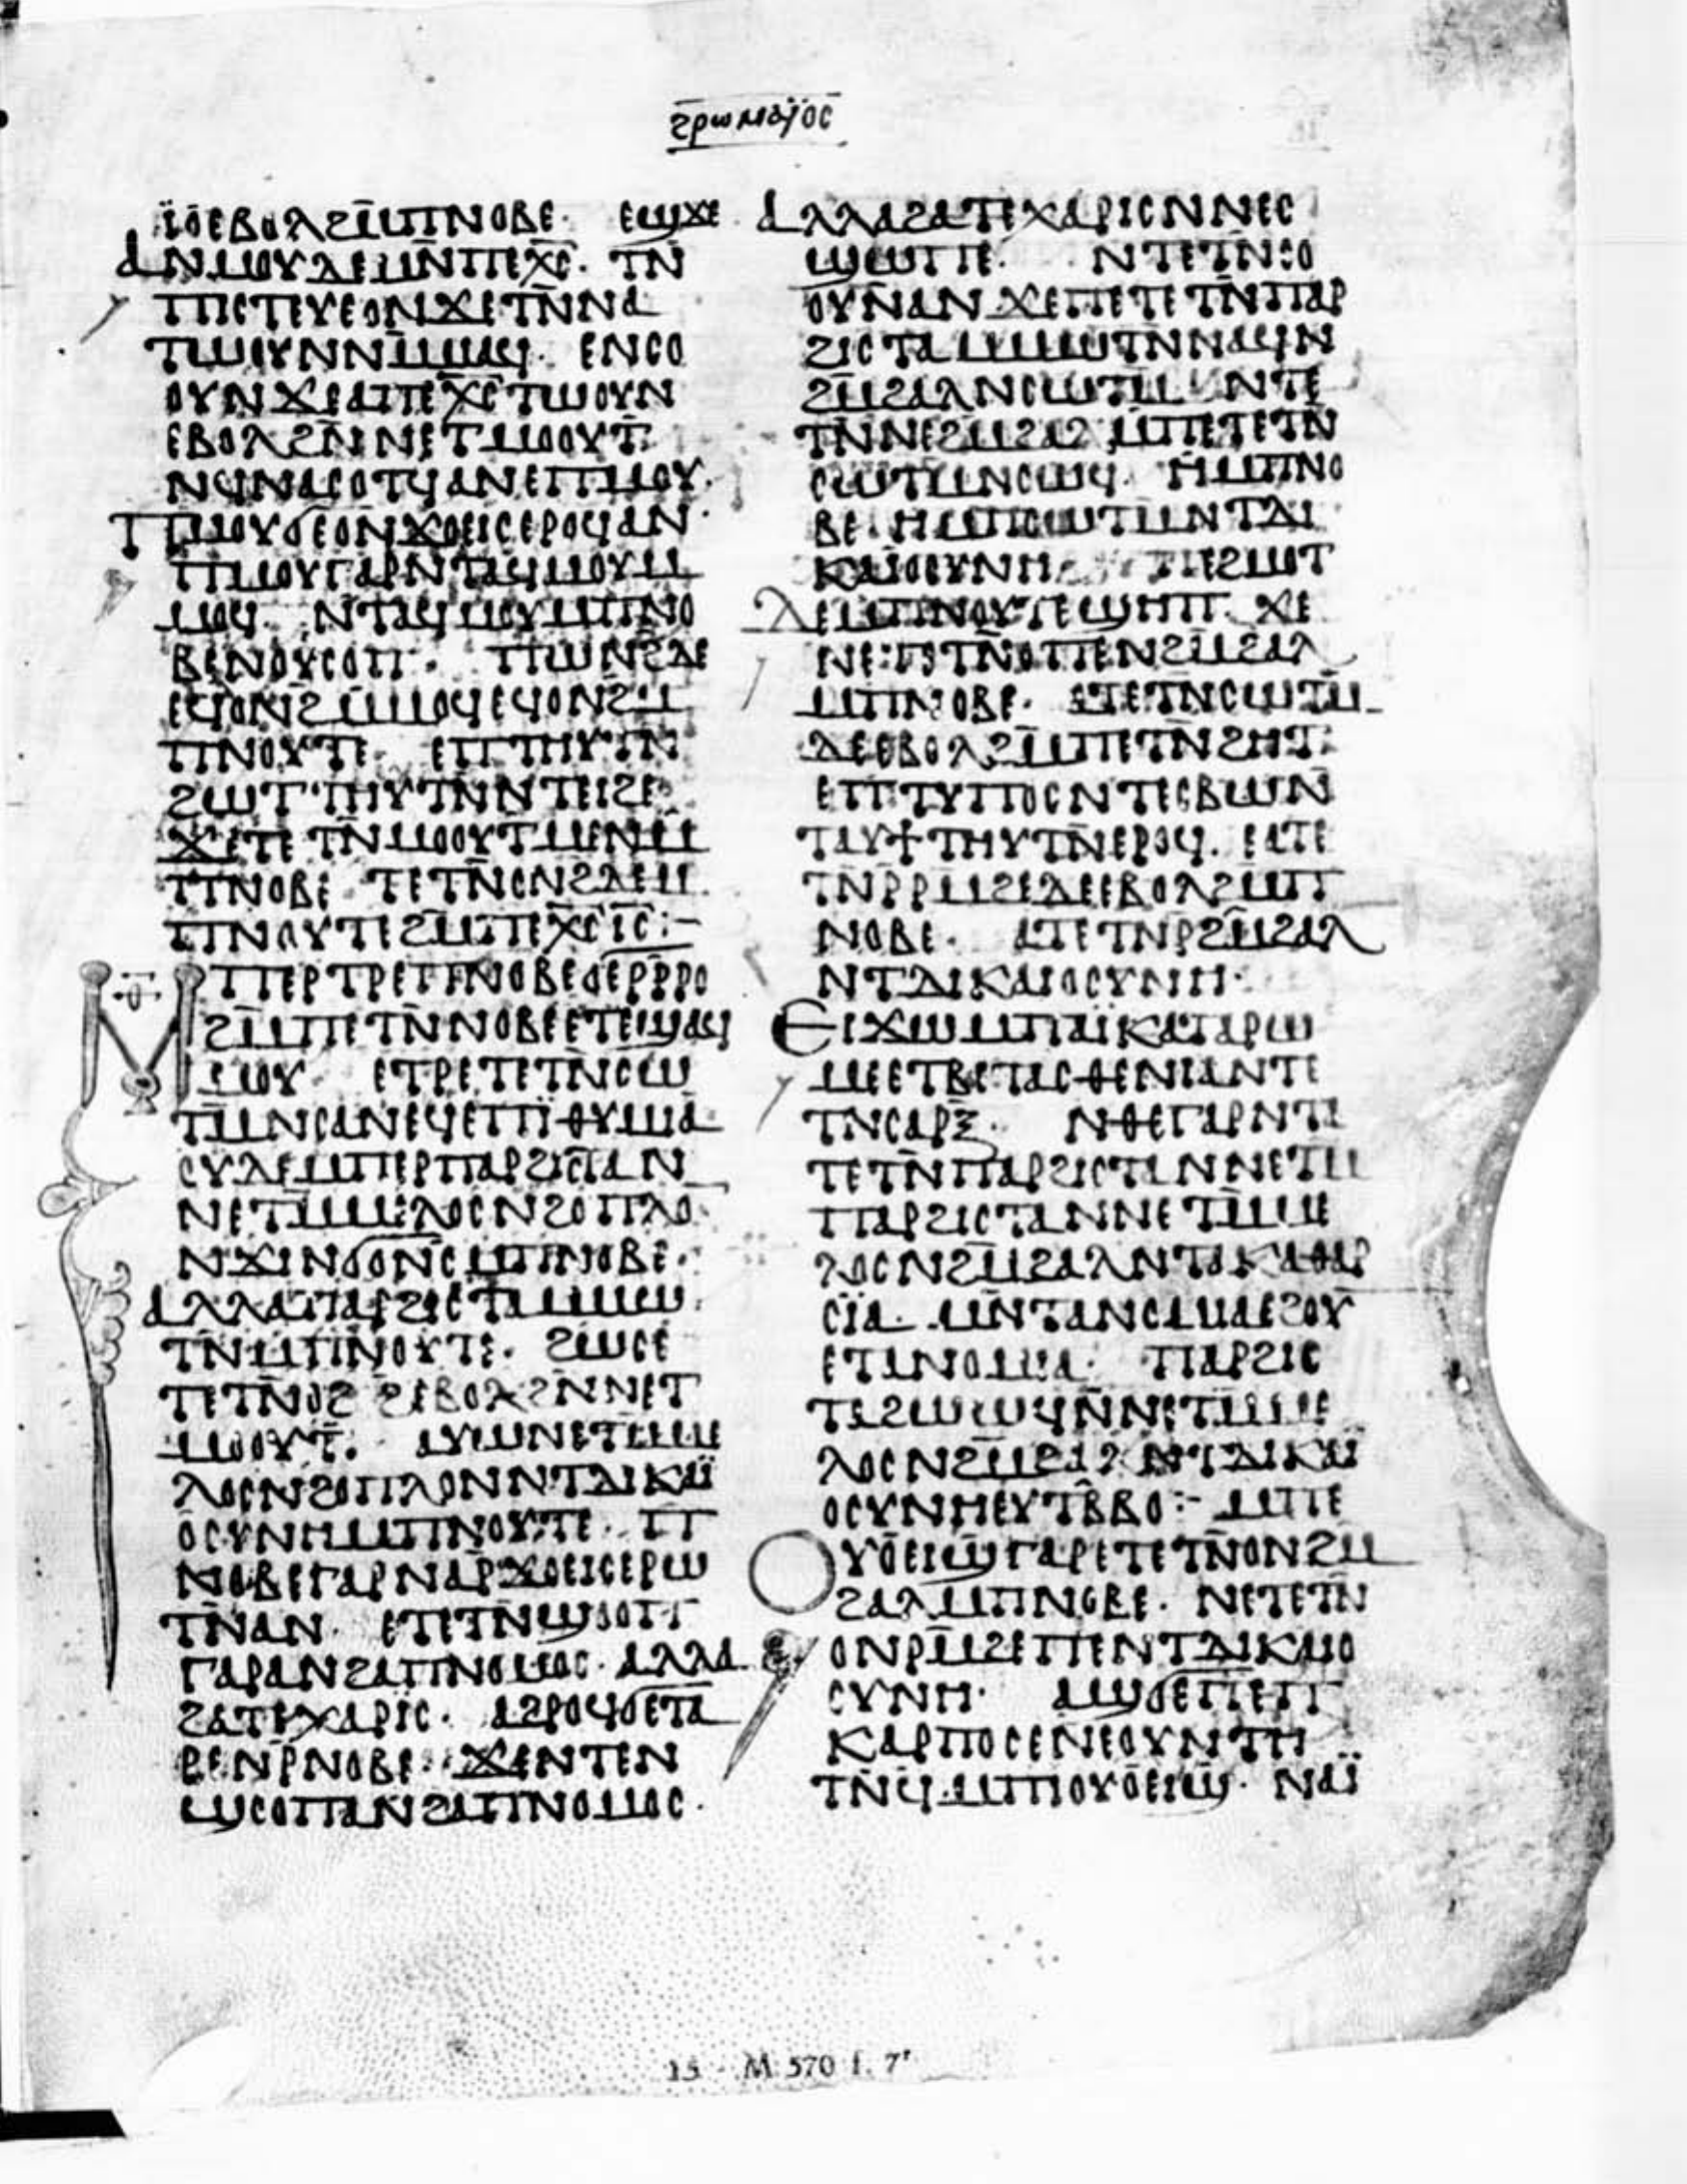 ϩⲣⲱⲙⲁⲓⲟⲥ
ⲓⲟⲉⲃⲟⲗϩⲙⲡⲛⲟⲃⲉ· ⲉϣϫⲉ
ⲁⲛⲙⲟⲩⲇⲉⲙⲛⲡⲉⲭⲥ· ⲧⲛ
ⲡⲓⲥⲧⲉⲩⲉⲟⲛϫⲉⲧⲛⲛⲁ
ⲧⲱⲟⲩⲛⲛⲙⲙⲁϥ· ⲉⲛⲥⲟ
ⲟⲩⲛϫⲉⲁⲡⲉⲭⲥⲧⲱⲟⲩⲛ
ⲉⲃⲟⲗϩⲛⲛⲉⲧⲙⲟⲟⲩⲧ·
ⲛϥⲛⲁⲕⲟⲧϥⲁⲛⲉⲡⲙⲟⲩ·
ⲡⲙⲟⲩϭⲉⲟⲛϫⲟⲉⲓⲥⲉⲣⲟϥⲁⲛ·
ⲡⲙⲟⲩⲅⲁⲣⲛⲧⲁϥⲙⲟⲩⲙ
ⲙⲟϥ· ⲛⲧⲁϥⲙⲟⲩⲙⲡⲛⲟ
ⲃⲉⲛⲟⲩⲥⲟⲡ· ⲡⲱⲛϩⲇⲉ
ⲉϥⲟⲛϩⲙⲙⲟϥⲉϥⲟⲛϩⲙ
ⲡⲛⲟⲩⲧⲉ· ⲉⲡⲧⲏⲩⲧⲛ
ϩⲱⲧⲧⲏⲩⲧⲛⲛⲧⲉⲓϩⲉ
ϫⲉⲧⲉⲧⲛⲙⲟⲟⲩⲧⲙⲉⲛⲙ
ⲡⲛⲟⲃⲉ ⲧⲉⲧⲛⲟⲛϩⲇⲉⲙ
ⲡⲛⲟⲩⲧⲉϩⲙⲡⲉⲭⲥⲓⲥ:–
ⲙⲡⲉⲣⲧⲣⲉⲡⲛⲟⲃⲉϭⲉⲣⲣⲣⲟ
ϩⲙⲡⲉⲧⲛⲛⲟⲃⲉⲉⲧⲉϣⲁϥ
ⲙⲟⲩ· ⲉⲧⲣⲉⲧⲉⲧⲛⲥⲱ
ⲧⲙⲛⲥⲁⲛⲉϥⲉⲡⲓⲑⲩⲙⲓⲁ·
ⲟⲩⲇⲉⲙⲡⲉⲣⲡⲁⲣϩⲓⲥⲧⲁⲛ
ⲛⲉⲧⲙⲙⲉⲗⲟⲥⲛϩⲟⲡⲗⲟ
ⲛϫⲓⲛϭⲟⲛⲥⲙⲡⲛⲟⲃⲉ·
ⲁⲗⲗⲁⲡⲁⲣϩⲓⲥⲧⲁⲙⲙⲱ
ⲧⲛⲙⲡⲛⲟⲩⲧⲉ· ϩⲱⲥⲉ
ⲧⲉⲧⲛⲟⲛϩⲉⲃⲟⲗϩⲛⲛⲉⲧ
ⲙⲟⲟⲩⲧ· ⲁⲩⲱⲛⲉⲧⲙⲙⲉ
ⲗⲟⲥⲛϩⲟⲡⲗⲟⲛⲛⲧⲇⲓⲕⲁⲓ
ⲟⲥⲩⲛⲏⲙⲡⲛⲟⲩⲧⲉ· ⲡ
ⲛⲟⲃⲉⲅⲁⲣⲛⲁⲣϫⲟⲉⲓⲥⲉⲣⲱ
ⲧⲛⲁⲛ· ⲉⲧⲉⲧⲛϣⲟⲟⲡ
ⲅⲁⲣⲁⲛϩⲁⲡⲛⲟⲙⲟⲥ· ⲁⲗⲗⲁ
ϩⲁⲧⲉⲭⲁⲣⲓⲥ· ⲁϩⲣⲟϥϭⲉⲧⲁ
ⲣⲉⲛⲣⲛⲟⲃⲉ ϫⲉⲛⲧⲉⲛ
ϣⲟⲟⲡⲁⲛϩⲁⲡⲛⲟⲙⲟⲥ·
ⲁⲗⲗⲁϩⲁⲧⲉⲭⲁⲣⲓⲥⲛⲛⲉⲥ
ϣⲱⲡⲉ· ⲛⲧⲉⲧⲛⲥⲟ
ⲟⲩⲛⲁⲛ ϫⲉⲡⲉⲧⲉⲧⲛⲡⲁⲣ
ϩⲓⲥⲧⲁⲙⲙⲱⲧⲛⲛⲁϥⲛ
ϩⲙϩⲁⲗⲛⲥⲱⲧⲙ ⲛⲧⲉ
ⲧⲛⲛⲉϩⲙϩⲁⲗⲙⲡⲉⲧⲉⲧⲛ
ⲥⲱⲧⲙⲛⲥⲱϥ· ⲏⲙⲡⲛⲟ
ⲃⲉ· ⲏⲙⲡⲥⲱⲧⲙⲛⲧⲇⲓ
ⲕⲁⲓⲟⲥⲩⲛⲏ· ⲡⲉϩⲙⲟⲧ
ⲇⲉⲙⲡⲛⲟⲩⲧⲉϣⲏⲡ· ϫⲉ
ⲛⲉⲧⲉⲧⲛⲟⲡⲉⲛϩⲙϩⲁⲗ
ⲙⲡⲛⲟⲃⲉ· ⲁⲧⲉⲧⲛⲥⲱⲧⲙ
ⲇⲉⲉⲃⲟⲗϩⲙⲡⲉⲧⲛϩⲏⲧ·
ⲉⲡⲧⲩⲡⲟⲥⲛⲧⲉⲥⲃⲱⲛ
ⲧⲁⲩϯⲧⲏⲩⲧⲛⲉⲣⲟϥ· ⲉⲁⲧⲉ
ⲧⲛⲣⲣⲙϩⲉⲇⲉⲉⲃⲟⲗϩⲙⲡ
ⲛⲟⲃⲉ· ⲁⲧⲉⲧⲛⲣϩⲙϩⲁⲗ
ⲛⲧⲇⲓⲕⲁⲓⲟⲥⲩⲛⲏ·
ⲉⲓϫⲱⲙⲡⲁⲓⲕⲁⲧⲁⲣⲱ
ⲙⲉⲉⲧⲃⲉⲧⲁⲥⲑⲉⲛⲓⲁⲛⲧⲉ
ⲧⲛⲥⲁⲣⲝ· ⲛⲑⲉⲅⲁⲣⲛⲧⲁ
ⲧⲉⲧⲛⲡⲁⲣϩⲓⲥⲧⲁⲛⲛⲉⲧⲙ
ⲡⲁⲣϩⲓⲥⲧⲁⲛⲛⲉⲧⲙⲙⲉ
ⲗⲟⲥⲛϩⲙϩⲁⲗⲛⲧⲁⲕⲁⲑⲁⲣ
ⲥⲓⲁ· ⲙⲛⲧⲁⲛⲟⲙⲓⲁⲉϩⲟⲩ
ⲉⲧⲁⲛⲟⲙⲓⲁ· ⲡⲁⲣϩⲓⲥ
ⲧⲁϩⲱⲱϥⲛⲛⲉⲧⲙⲙⲉ
ⲗⲟⲥⲛϩⲙϩⲁⲗⲛⲧⲇⲓⲕⲁⲓ
ⲟⲥⲩⲛⲏⲉⲩⲧⲃⲃⲟ:– ⲙⲡⲉ
ⲟⲩⲟⲉⲓϣⲅⲁⲣⲉⲧⲉⲧⲛⲟⲛϩⲙ
ϩⲁⲗⲙⲡⲛⲟⲃⲉ· ⲛⲉⲧⲉⲧⲛ
ⲟⲛⲣⲙϩⲉⲡⲉⲛⲧⲇⲓⲕⲁⲓⲟ
ⲥⲩⲛⲏ· ⲁϣϭⲉⲡⲉⲡ
ⲕⲁⲣⲡⲟⲥⲉⲛⲉⲟⲩⲛⲧⲏ
ⲧⲛϥ·ⲙⲡⲓⲟⲩⲟⲉⲓϣ· ⲛⲁⲓ
15 M 570 f. 7ʳ